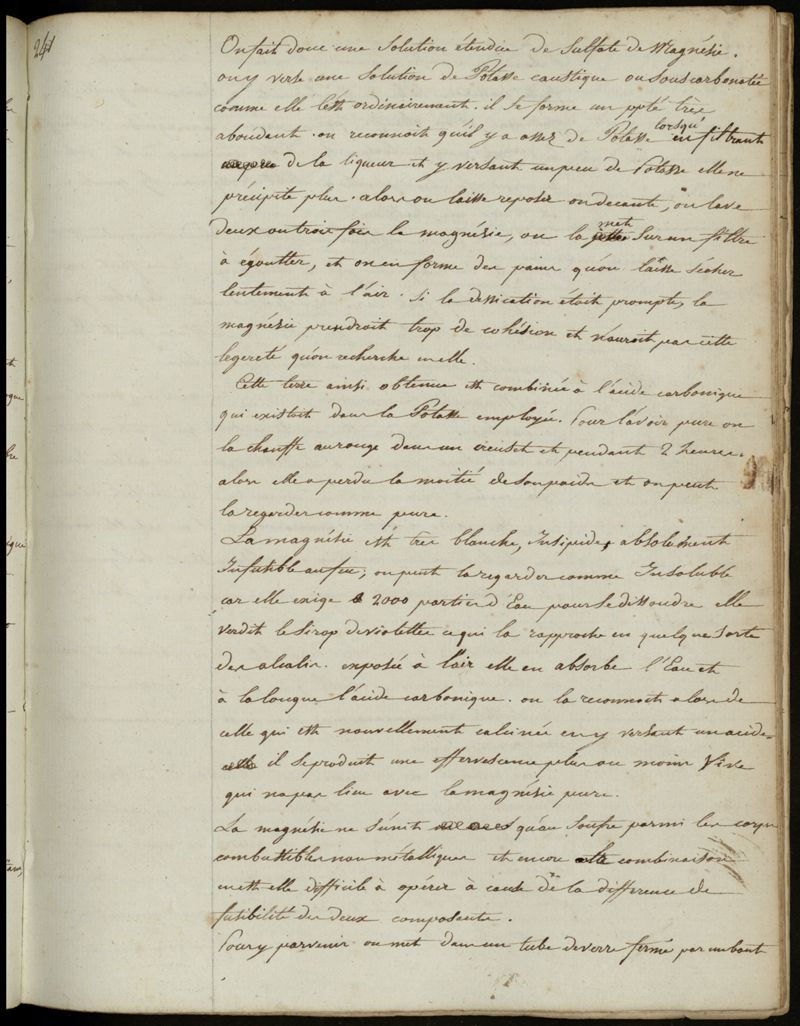 241
On fait donc une solution étendue de Sulfate de Magnésie.
on y verse une solution de Potasse caustique ou souscarbonatée
comme elle l'est ordinairement. il se forme un ppté très
abondant. on reconnoit qu'il y a assez de Potasse lorsqu' en filtrant
de la liqueur et y versant un peu de Potasse elle ne
précipite plus. alors on laisse reposer on decante, on lave
deux ou trois fois la magnésie, on la met sur un filtre
à égoutter, et on en forme des pains qu'on laisse sécher
lentement à l'air. Si la dessication étoit prompte, la
magnésie prendroit trop de cohésion et n'auroit pas cette
legereté qu'on recherche en elle.
Cette terre ainsi obtenue est combinée à l'acide carbonique
qui existoit dans la Potasse employée. Pour l'avoir pure on
la chauffe au rouge dans un creuset et pendant 2 heures.
alors elle a perdu la moitié de son poids et on peut
la regarder comme pure.
La magnésie est très blanche, Insipide, absolument
Infusible au feu; on peut la regarder comme Insoluble
car elle exige 2000 parties d'Eau pour se dissoudre elle
verdit le Sirop de violettes ce qui la rapproche en quelque sorte
des alcalis. exposée à l'air elle en absorbe l'Eau et
à la longue l'acide carbonique. on la reconnoit alors de
celle qui est nouvellement calcinée en y versant un acide
il se produit une effervescence plus ou moins Vive
qui n'a pas lieu avec la magnésie pure.
La magnésie ne s'unit qu'au Soufre parmi les corps
combustibles non métalliques et encore cette combinaison
est elle difficile à opérer à cause de la difference de
fusibilité des deux composants.
Pour y parvenir on met dans un tube de verre fermé par un bout